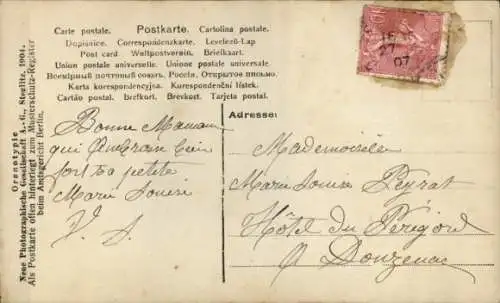 Carte postale. Postkarte. Cartolina postale.
Dopisnice. Correspondenzkarte. Levelező-Lap
Post card. Weltpostverein. Briefkaart.
Union postale universelle. Unione postale universale.
Всемірный почтовый союзъ. Россія. Открытое письмо.
Karta korespondencyjna. Korespondenční lístek.
Cartão postal. Brefkort. Brevkort. Tarjeta postal.
Orthotypie
Neue Photographische Gesellschaft A.-G., Steglitz, 1904.
Als Postkarte offen hinterlegt zum Musterschutz-Register
beim Amtsgericht Berlin.
Adresse:
15
27
07
10
Bonne Maman
qui embrasse bien
fort sa petite
Marie Louise
V. S.
Mademoiselle
Marie Louise Peyrat
Hôtel du Périgord
à Donzenac